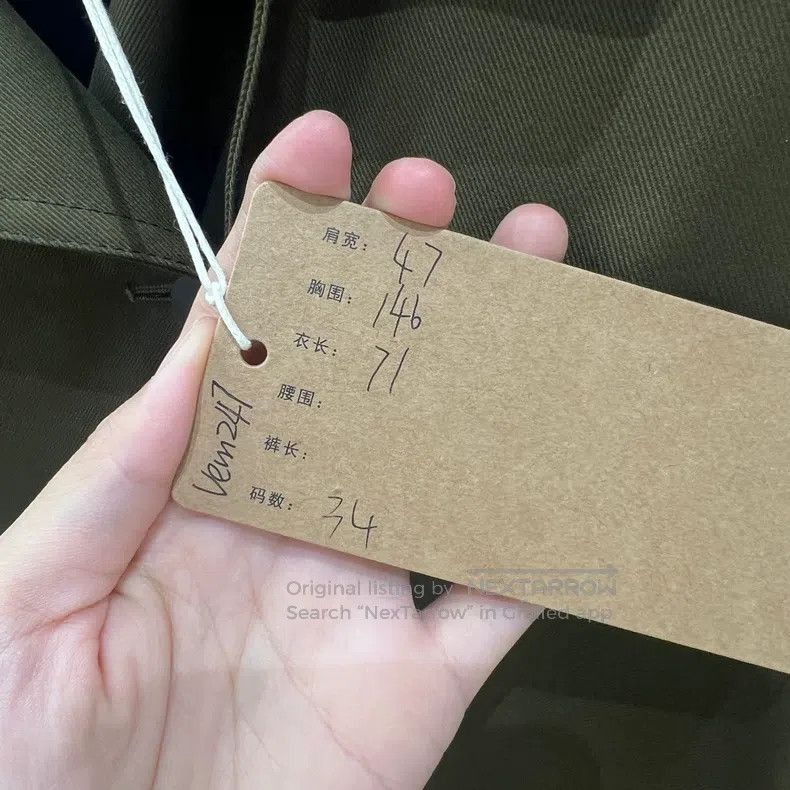 肩宽: 47
胸围: 146
衣长: 71
腰围:
裤长:
码数: 34
Vem247
Original listing by NEXTARROW
Search "NexTarrow" in Grailed app